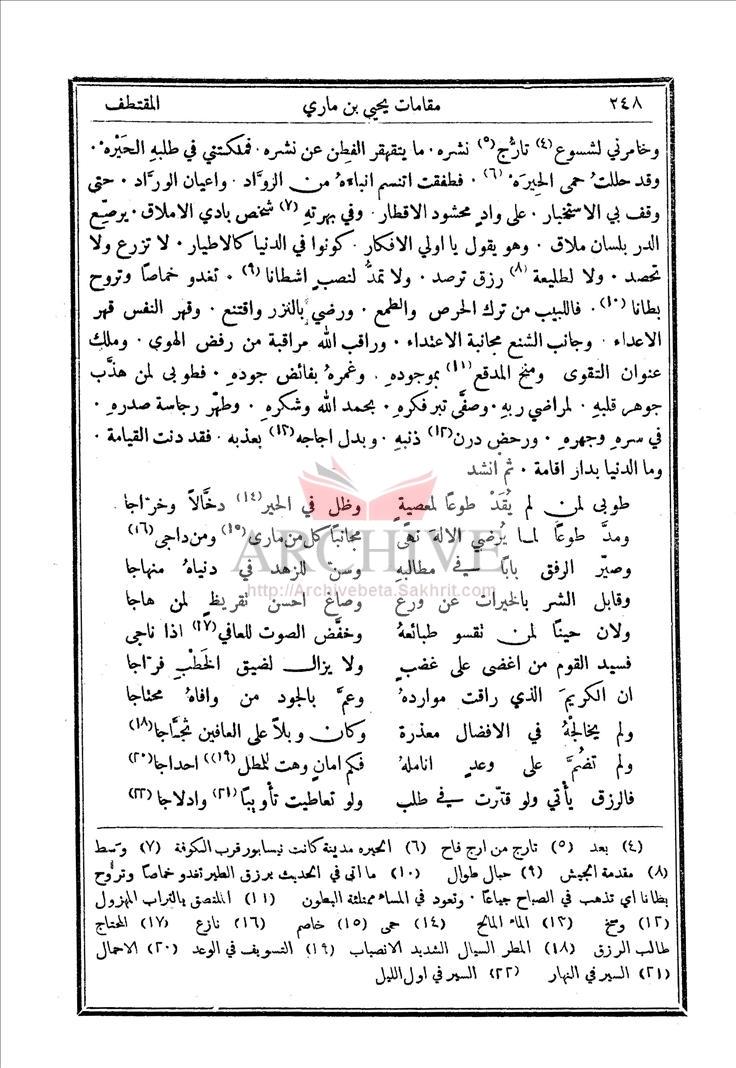 ٢٤٨ مقامات يحيى بن ماري المقتطف
وخامرني لشسوع (٤) تارُّج (٥) نشره ۰ ما يتقهقر الفطِن عن نشره ۰ فملكتني في طلبهِ الحَيْره ۰
وقد حللتُ حمى الحِيرَه (٦) ۰ فطفقت اتنسم انباءَهُ من الروَّاد ۰ واعيان الورَّاد ۰ حتى
وقف بي الاستخبار ۰ على وادٍ محشود الاقطار ۰ وفي بهرتهِ (٧) شخص بادي الاملاق ۰ يرصِّع
الدر بلسان ملاق ۰ وهو يقول يا اولي الافكار ۰ كونوا في الدنيا كالاطيار ۰ لا تزرع ولا
تحصد ۰ ولا لطليعة (٨) رزق ترصد ۰ ولا تمدُّ لنصبٍ اشطانا (٩) ۰ تغدو خماصًا وتروح
بطانا (١٠) ۰ فاللبيب من ترك الحرص والطمع ۰ ورضي بالنزر واقتنع ۰ وقهر النفس قهر
الاعداء ۰ وجانب الشنع مجانبة الاعتداء ۰ وراقب الله مراقبة من رفض الهوى ۰ وملك
عنوان التقوى ومنح المدقع (١١) بموجودهِ ۰ وغمرهُ بفائض جودهِ ۰ فطوبى لمن هذَّب
جوهر قلبهِ ۰ لمراضي ربهِ ۰ وصفَّى تبر فكرهِ ۰ بحمد الله وشكرهِ ۰ وطهَّر رجاسة صدرهِ ۰
في سرهِ وجهرهِ ۰ ورحض درن (١٢) ذنبهِ ۰ وبدل اجاجه (١٣) بعذبه ۰ فقد دنت القيامة ۰
وما الدنيا بدار اقامة ۰ ثم انشد
طوبى لمن لم يُقَدْ طوعًا لمعصيةٍ وظل في الحير (١٤) دخَّالاً وخرَّاجا
ومدَّ طوعًا لما يُرضي الاله نهى مجانبًا كل من مارى (١٥) ومن داجى (١٦)
وصيّر الرفق بابًا في مطالبهِ وسنَّ للزهد في دنياهُ منهاجا
وقابل الشر بالخيرات عن ورع وصاغ احسن تقريظٍ لمن هاجا
ولان حينًا لمن تقسو طبائعهُ وخفَّض الصوت للعافي (١٧) اذا ناجى
فسيد القوم من اغضى على غضبٍ ولا يزال لضيق الخَطْب فرَّاجا
ان الكريمَ الذي راقت مواردهُ وعمَّ بالجود من وافاهُ محتاجا
ولم يخالجْهُ في الافضال معذرة وكان وبلاً على العافين ثجَّاجا (١٨)
ولم تضُمَّ على وعدٍ انامله فكم امانٍ وهت للمطل (١٩) احداجا (٢٠)
فالرزق يأتي ولو قترت في طلب ولو تعاطيت تأويبًا (٢١) وادلاجا (٢٢)
(٤) بعد (٥) تارج من ارج فاح (٦) الحيره مدينة كانت نيسابور قرب الكوفة (٧) وسط
(٨) مقدمة الجيش (٩) حبال طوال (١٠) ما اتى في الحديث برزق الطير تغدو خماصًا وتروح
بطانا اي تذهب في الصباح جياعًا ۰ وتعود في المساء ممتلئة البطون (١١) الملتصق بالتراب المهزول
(١٢) وسخ (١٣) الماء المالح (١٤) حمى (١٥) خاصم (١٦) نازع (١٧) المحتاج
طالب الرزق (١٨) المطر السيال الشديد الانصباب (١٩) التسويف في الوعد (٢٠) الاحمال
(٢١) السير في النهار (٢٢) السير في اول الليل
ARCHIVE
http://Archivebeta.Sakhrit.com